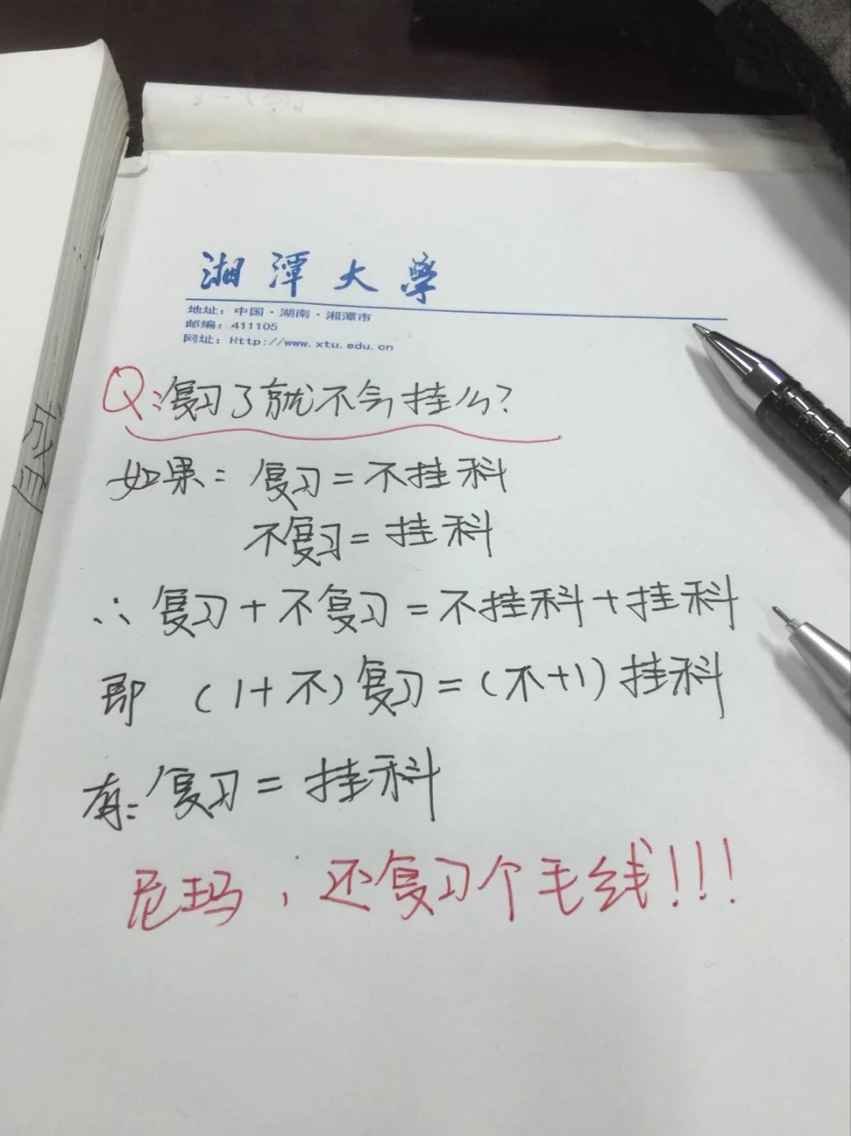 湘潭大学
地址：中国·湖南·湘潭市
邮编：411105
网址：Http://www.xtu.edu.cn
Q:复习了就不会挂么?
如果：复习=不挂科
不复习=挂科
∴复习+不复习=不挂科+挂科
即 (1+不)复习=(不+1)挂科
有：复习=挂科
尼玛，还复习个毛线!!!